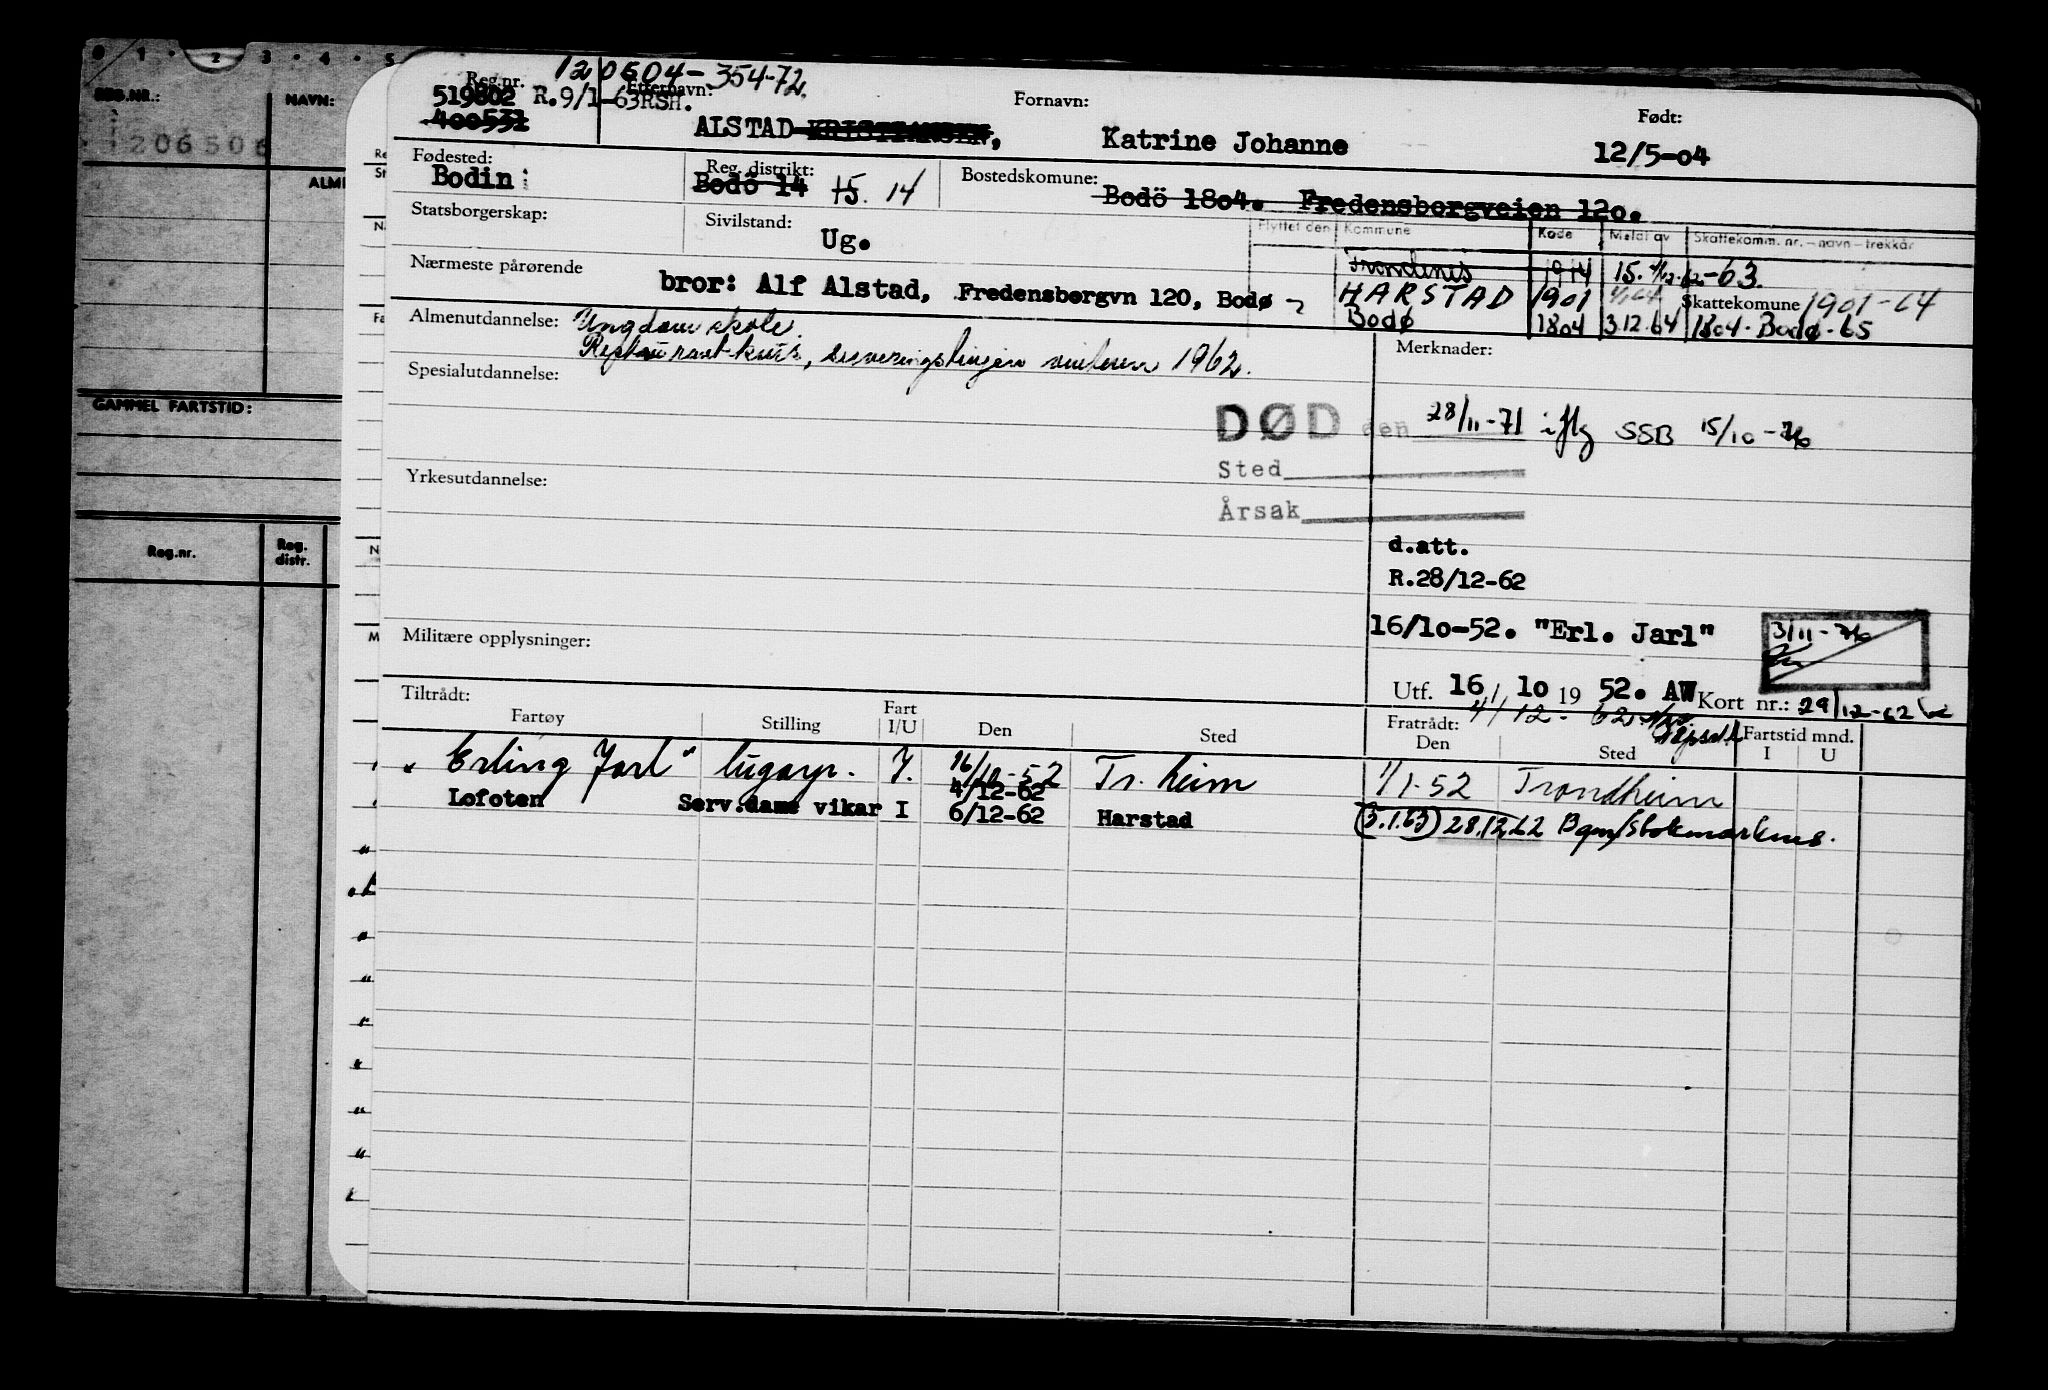 0 1 · 2 · 3 · 4 · 5
REG.NR.:
NAVN:
206506
ALM
GAMMEL FARTSTID:
Reg.nr.
Reg. distr.
120604-354-72.
Reg.nr.
519602 R.9/1-63RSH.
400531
Etternavn:
ALSTAD KRISTIANSEN,
Fornavn:
Katrine Johanne
Født:
12/5-04
Fødested:
Bodin
Reg. distrikt:
Bodö 14 15. 14
Bostedskomune:
Bodö 1804. Fredensborgveien 120.
Statsborgerskap:
Sivilstand:
Ug.
Flyttet den Kommune Kode Meldt av Skattekomm. nr. - navn - trekkår
Trondenes 1914 15. -63.
HARSTAD 1901 Skattekomune 1901-64
Bodø 1804 3.12.64 1804-Bodø-65
Nærmeste pårørende
bror: Alf Alstad, Fredensborgvn 120, Bodø
Almenutdannelse: Ungdomskole.
Restaurantkurs, vinteren 1962.
Spesialutdannelse:
Merknader:
DØD den 28/11-71 iflg SSB 15/10-76
Sted
Årsak
Yrkesutdannelse:
d.att.
R.28/12-62
16/10-52. "Erl. Jarl"
3/11-76
Militære opplysninger:
Utf. 16/10 1952. AW Kort nr.: 29/12-62
Tiltrådt:
Fratrådt: 4/12-62
Fartøy Stilling Fart I/U Den Sted Den Sted Fartstid mnd. I U
"Erling Jarl" lugarp. I. 16/10-52 Tr. heim 1/1-52 Trondheim
4/12-62
Lofoten Serv.dame vikar I 6/12-62 Harstad (3.1.63) 28.12.62 Bgn/Stokmarknes.